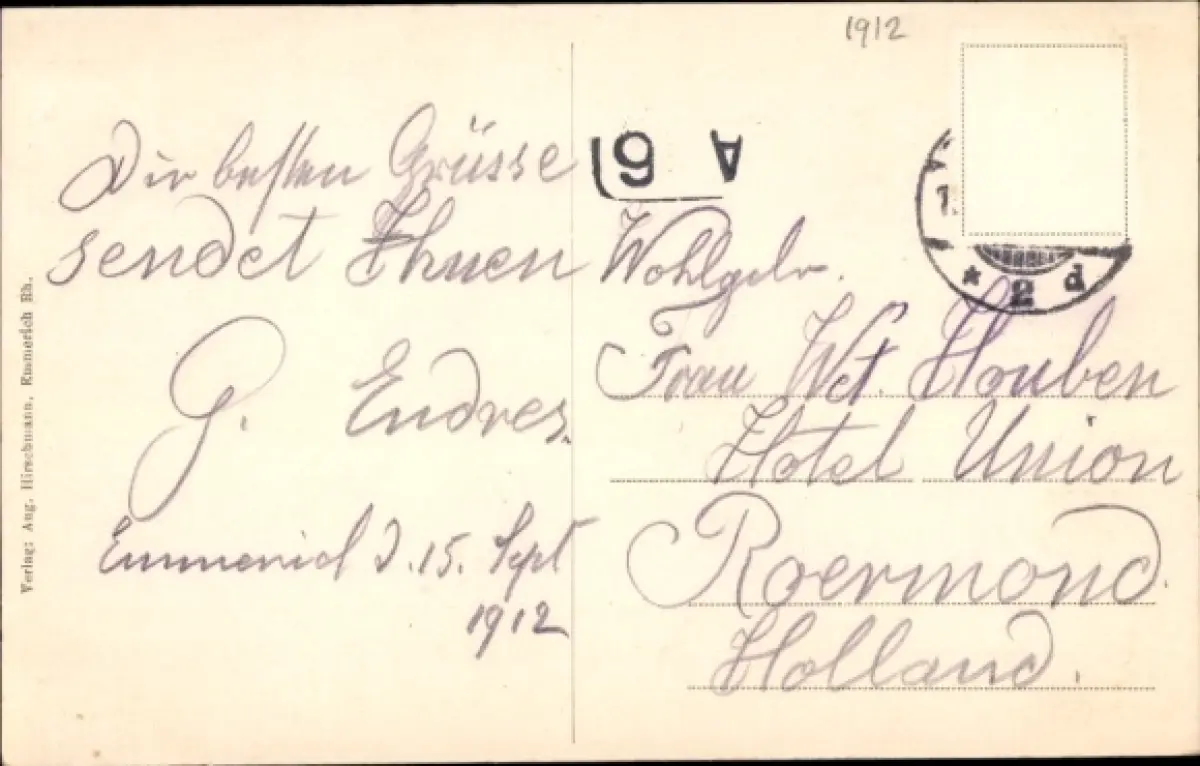 1912
Die besten Grüsse
sendet Ihnen
G. Endres.
Emmerich d. 15. Sept
1912
A 61
1.
* 2 d
Wohlgeb.
Frau Wct. Houben
Hotel Union
Roermond.
Holland.
Verlag: Aug. Hirschmann, Emmerich Rh.